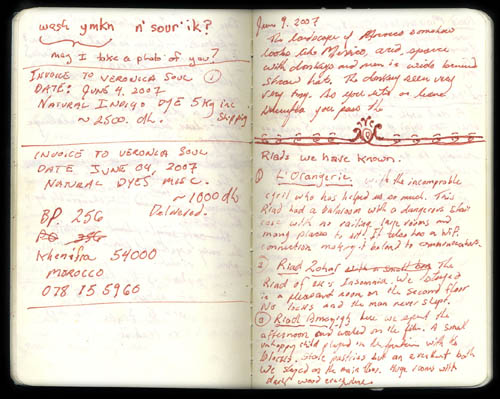 wash ymkn n' sour 'ik?
may I take a photo of you?
INVOICE TO VERONICA SOUL ①
DATE: JUNE 4, 2007
NATURAL INDIGO DYE 5 Kg inc
Shipping
~ 2500. dh.
INVOICE TO VERONICA SOUL
DATE JUNE 04, 2007
NATURAL DYES MISC.
~ 1000 dh
Delivered.
BP. 256
Khenifra 54000
MOROCCO
078 15 5960
June 9, 2007
The landscape of Morocco somehow
looks like Mexico, arid, sparse
with donkeys and men in wide brimmed
straw hats. The donkeys seem very
very tiny. As you enter or leave
you pass the
Riads we have known.
① L'Orangerie. with the incomprable
cyril who has helped us so much. This
Riad had a bathroom with a dangerous stair
case with no railing, large rooms and
many places to sit. It also has a WiFi
connection making it bland to conversations.
② Riad Zohar The
Riad of Insomnia. We stayed
in a pleasant room on the second floor
No locks and the man never slept.
③ Riad Amazigh here we spent the
afternoon and worked on the film. A small
unhappy child played in the fountain with the
stole pastries but an excellent bath
We stayed on the main floor. Huge rooms with
dark wood